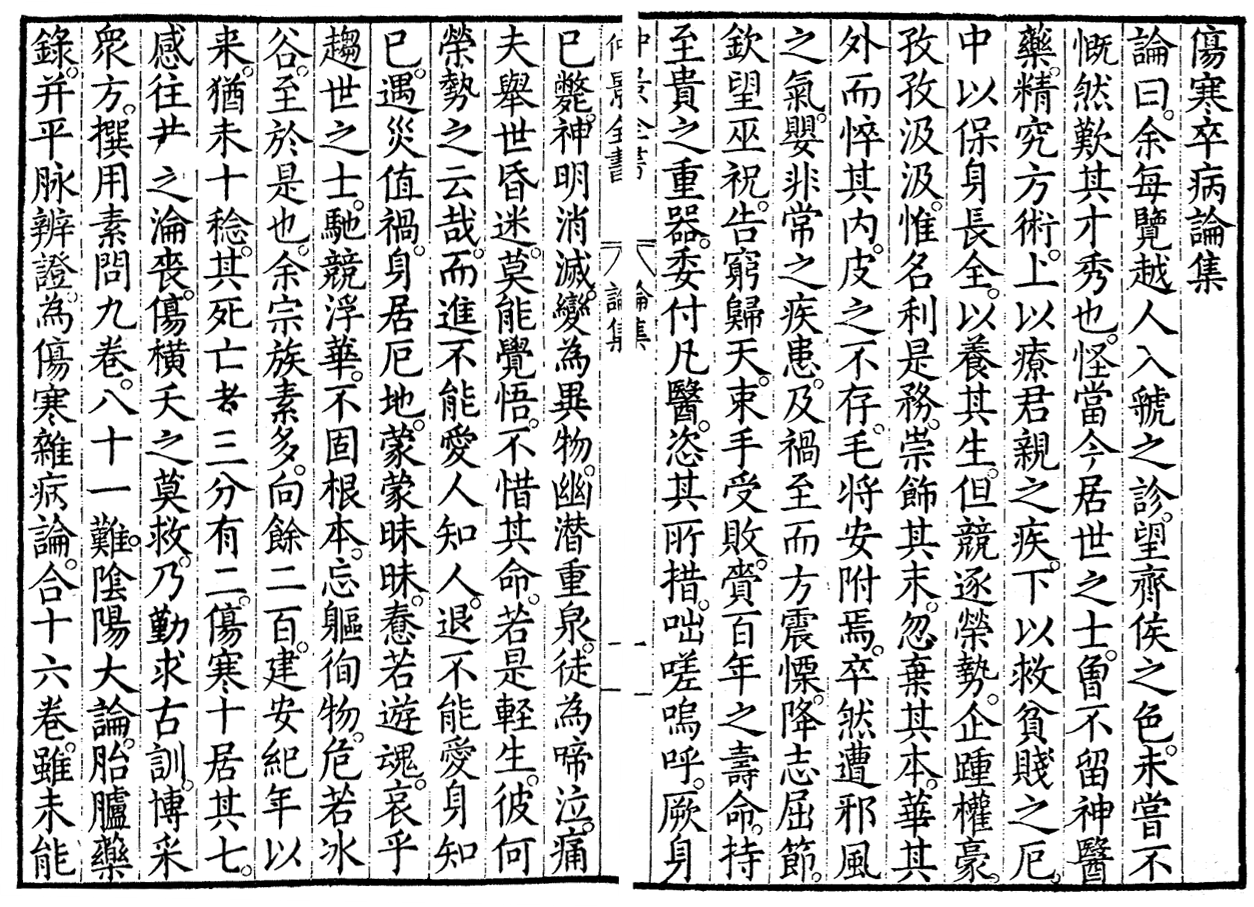 傷寒卒病論集
論曰。余每覽越人入虢之診。望齊侯之色。未嘗不
慨然歎其才秀也。怪當今居世之士。曾不留神醫
藥。精究方術。上以療君親之疾。下以救貧賤之厄。
中以保身長全。以養其生。但競逐榮勢。企踵權豪。
孜孜汲汲。惟名利是務。崇飾其末。忽棄其本。華其
外而悴其內。皮之不存。毛將安附焉。卒然遭邪風
之氣。嬰非常之疾。患及禍至而方震慄。降志屈節。
欽望巫祝。告窮歸天。束手受敗。賫百年之壽命。持
至貴之重器。委付凡醫。恣其所措。咄嗟嗚呼。厥身
仲景全書 論集 一
已斃。神明消滅。變為異物。幽潛重泉。徒為啼泣。痛
夫舉世昏迷。莫能覺悟。不惜其命。若是輕生。彼何
榮勢之云哉。而進不能愛人知人。退不能愛身知
已。遇災值禍。身居厄地。蒙蒙昧昧。憃若遊魂。哀乎
趨世之士。馳競浮華。不固根本。忘軀徇物。危若冰
谷。至於是也。余宗族素多。向餘二百。建安紀年以
来。猶未十稔。其死亡者三分有二。傷寒十居其七。
感往昔之淪喪。傷橫夭之莫救。乃勤求古訓。博采
衆方。撰用素問九卷。八十一難。陰陽大論。胎臚藥
錄。并平脉辨證。為傷寒雜病論。合十六卷。雖未能